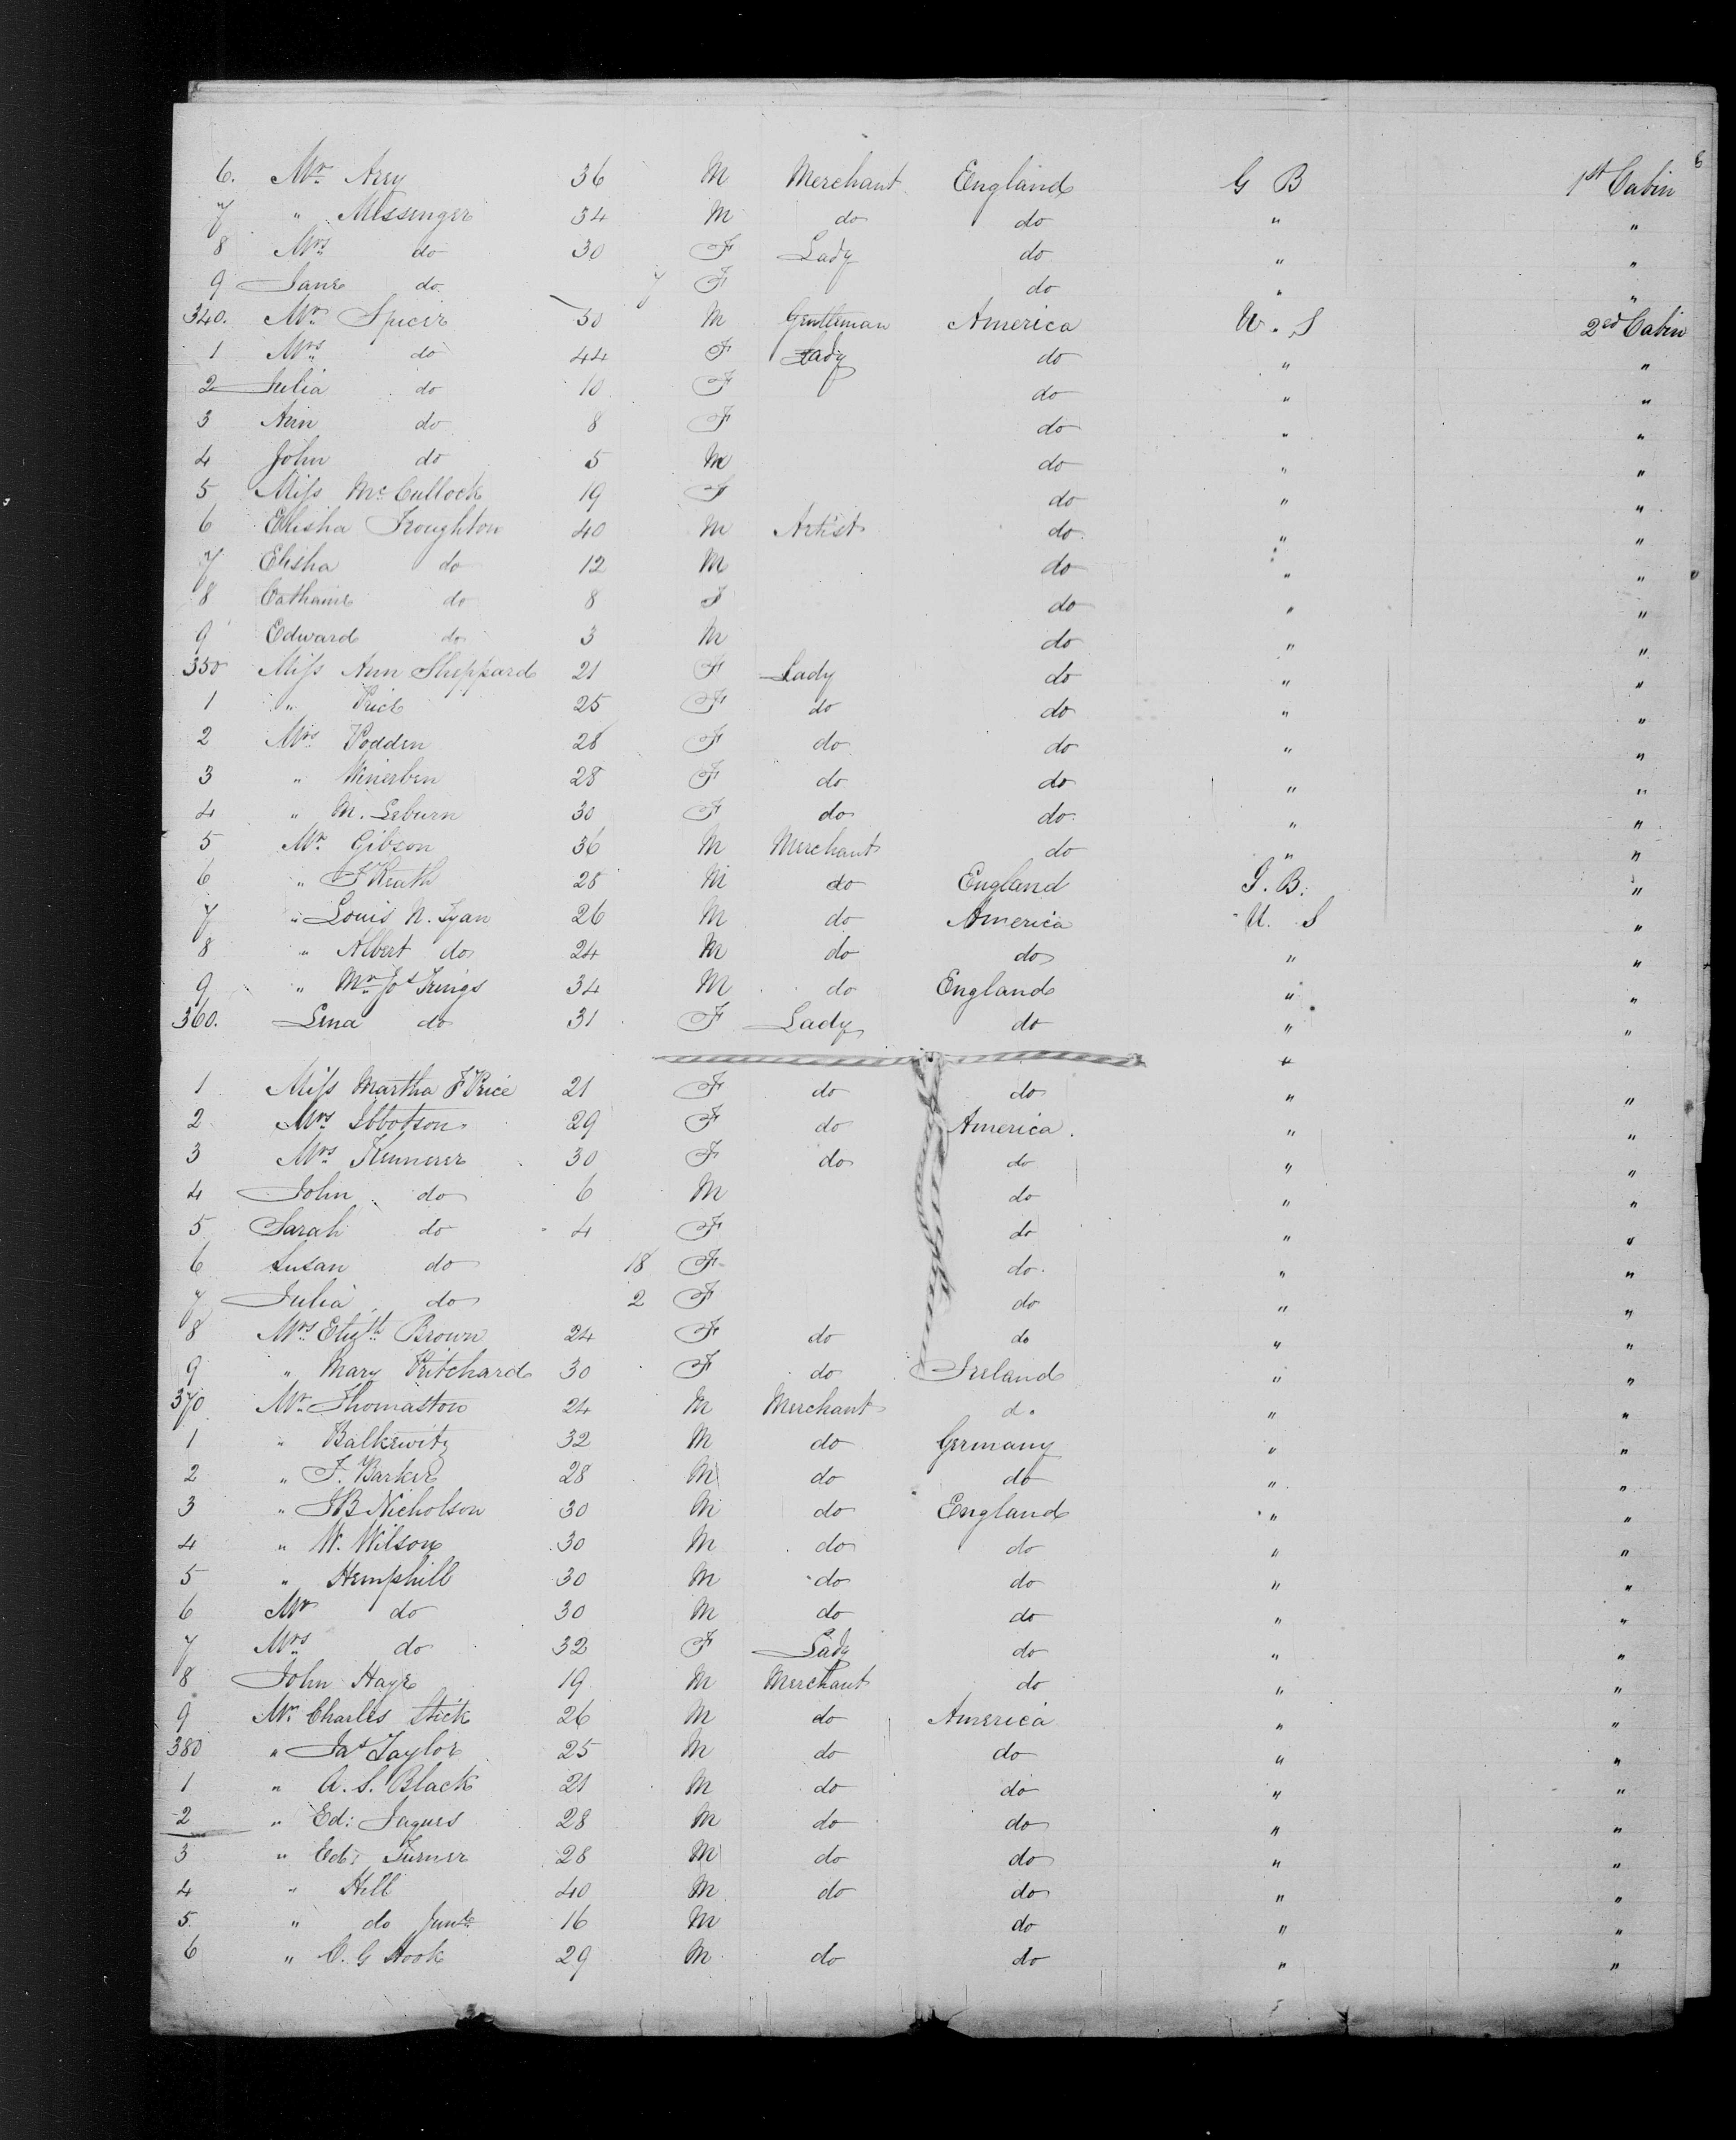 6. Mr. Arey 36 M Merchant England G B 1st Cabin 6
7 " Messenger 34 M do do " "
8 Mrs do 30 F Lady do " "
9 Jane do 7 F do " "
340. Mr. Spicer 50 M Gentleman America U. S 2ed Cabin
1 Mrs do 44 F Lady do " "
2 Julia do 10 F do " "
3 Ann do 8 F do " "
4 John do 5 M do " "
5 Miss McCullock 19 F do " "
6 Elisha Troughton 40 M Artist do " "
7 Elisha do 12 M do " "
8 Catharine do 8 F do " "
9 Edward do 3 M do " "
350 Miss Ann Sheppard 21 F Lady do " "
1 " Price 25 F do do " "
2 Mrs Podden 28 F do do " "
3 " 28 F do do " "
4 " M. Leburn 30 F do do " "
5 Mr. Gibson 36 M Merchant do " "
6 " 28 M do England G. B. "
7 " Louis N. 26 M do America U. S "
8 " Albert do 24 M do do " "
9 " Mr. Jos Trings 34 M do England " "
360. Lena do 31 F Lady do " "
1 Miss Martha F Price 21 F do do " "
2 Mrs Ibbotson 29 F do America. " "
3 Mrs Kennerer 30 F do do " "
4 John do 6 M do " "
5 Sarah do 4 F do " "
6 Susan do 18 F do " "
7 Julia do 2 F do " "
8 Mrs Elizth Brown 24 F do do " "
9 " Mary Pritchard 30 F do Ireland " "
370 Mr. Thomaston 24 M Merchant do " "
1 " Balkewitz 32 M do Germany " "
2 " F. Barker 28 M do do " "
3 " J B Nicholson 30 M do England " "
4 " W. Wilson 30 M do do " "
5 " Hemphill 30 M do do " "
6 Mr do 30 M do do " "
7 Mrs do 32 F Lady do " "
8 John Haye 19 M Merchant do " "
9 Mr. Charles Stick 26 M do America " "
380 " Jas Taylor 25 M do do " "
1 " A. S. Black 21 M do do " "
2 " Ed: Jaques 28 M do do " "
3 " Ed: Turner 28 M do do " "
4 " Hill 40 M do do " "
5. " do Junr 16 M do " "
6 " C. G Hook 29 M do do " "